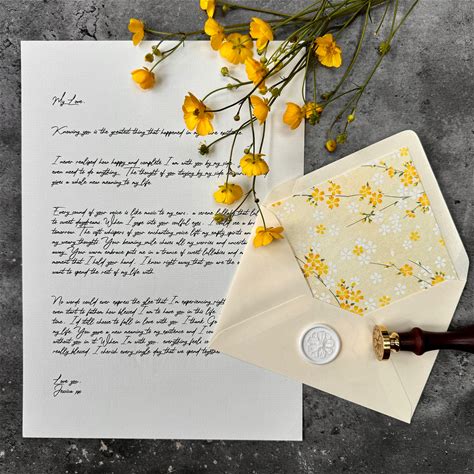 My Love,
Knowing you is the greatest thing that happened in my entire existence.
I never realised how happy and complete I am with you by my side
even need to do anything. The thought of you staying by my side
gives a whole new meaning to my life.
Every sound of your voice is like music to my ears, a serene lullaby that
to sweet daydreams. When I gaze into your soulful eyes, I
tomorrow. The soft whispers of your enchanting voice lift my empty spirit an
my weary thought. Your beaming smile chase all my worries and uncertai
away. Your warm embrace puts me in a trance of sweet lullabies and
moment that I held your hand, I knew right away that you are the
want to spend the rest of my life with.
No words could ever express the glee that I'm experiencing right
even start to fathom how blessed I am to have you in this life
time, I'd still choose to fall in love with you. I thank
my life. You gave a new meaning to my existence and I
without you in it. When I'm with you, everything feel
really blessed. I cherish every single day that we spend together
Love you,
Jessica xx